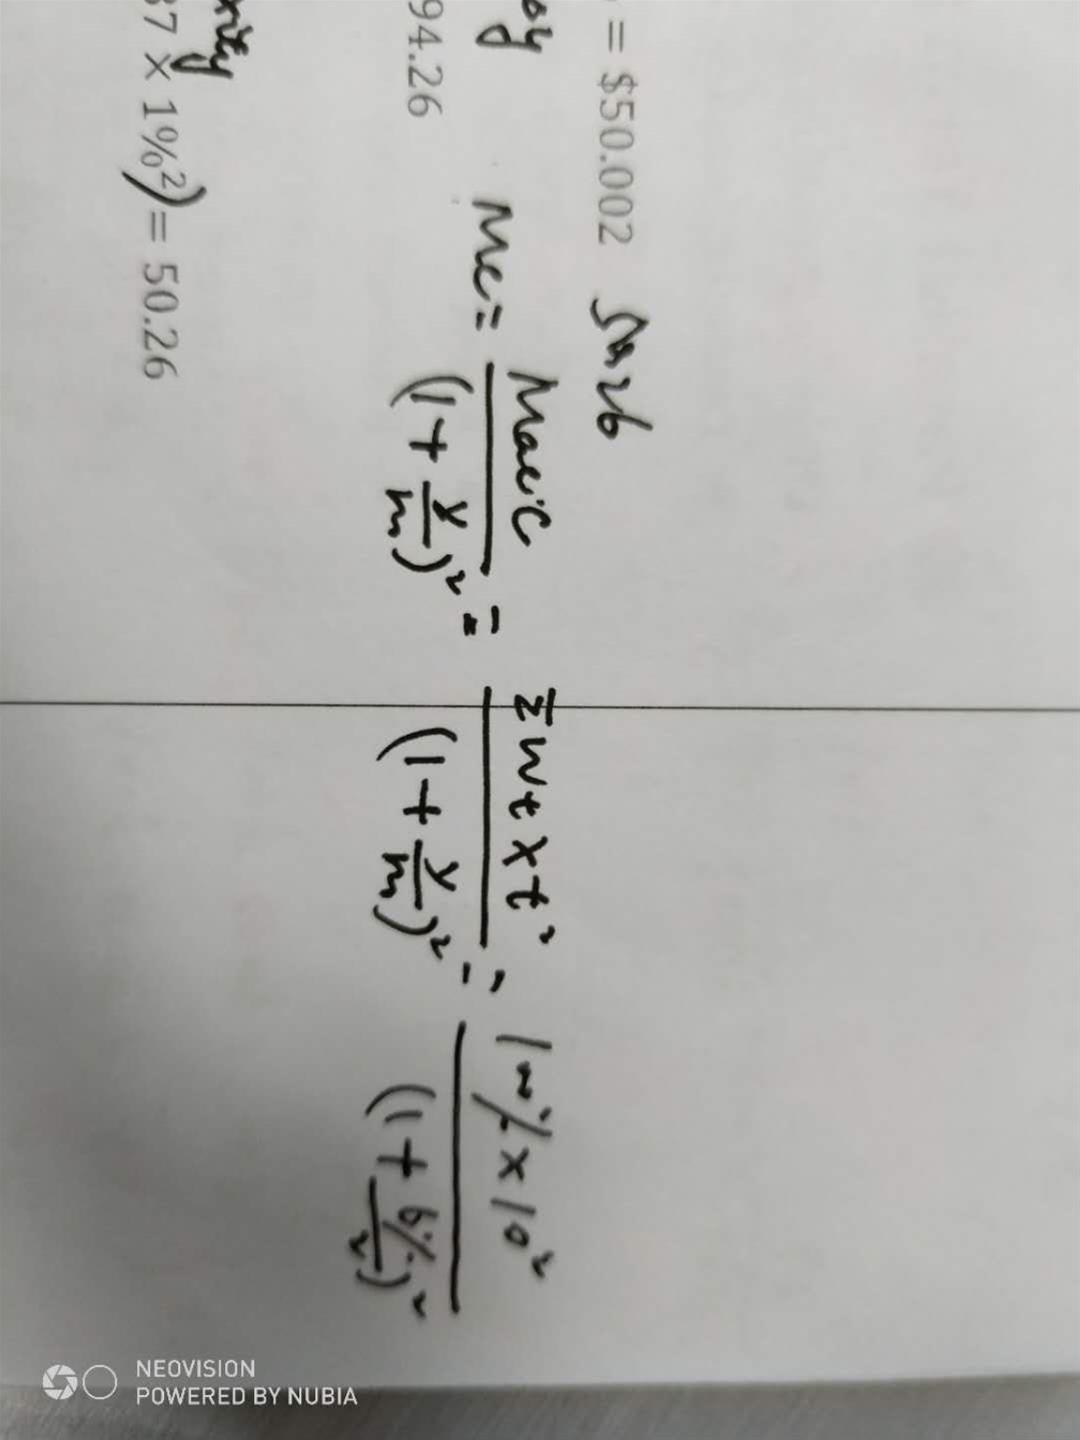 = $50.002 50.26
94.26 Mc = MacC / (1 + y/m)² = Σ Wt × t² / (1 + y/m)² = 100% × 10² / (1 + 6%/2)²
37 × 1%²) = 50.26
NEOVISION
POWERED BY NUBIA